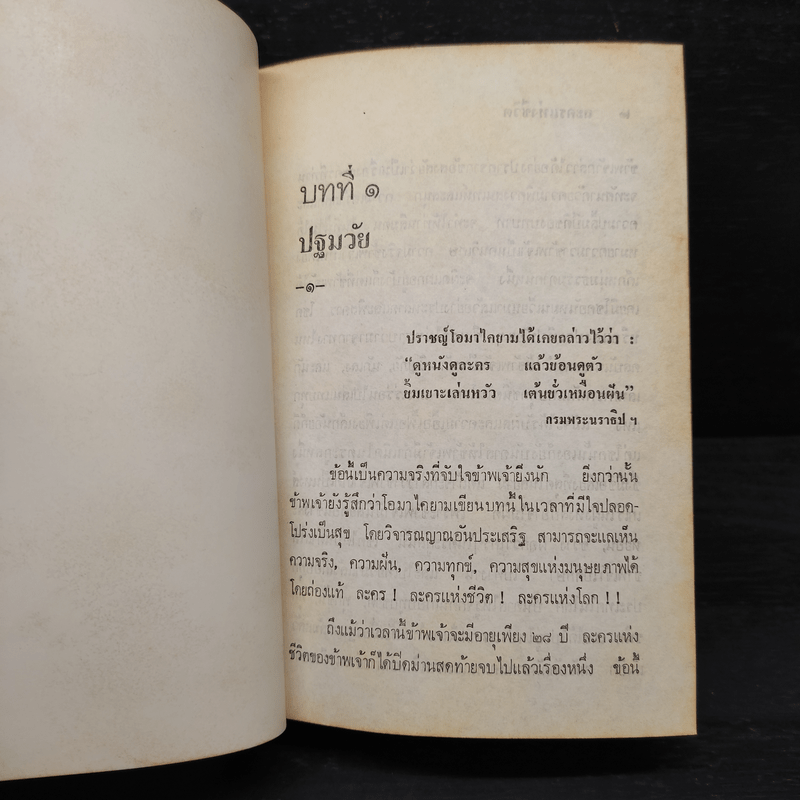 บทที่ ๑
ปฐมวัย
–๑–
ปราชญ์โอมาไคยามได้เคยกล่าวไว้ว่า :
“ดูหนังดูละคร แล้วย้อนดูตัว
ยิ้มเยาะเล่นหวัว เต้นยั่วเหมือนฝัน”
กรมพระนราธิป ฯ
ข้อนี้เป็นความจริงที่จับใจข้าพเจ้ายิ่งนัก ยิ่งกว่านั้น
ข้าพเจ้ายังรู้สึกว่าโอมาไคยามเขียนบทนี้ในเวลาที่มีใจปลอด-
โปร่งเป็นสุข โดยวิจารณญาณอันประเสริฐ สามารถจะแลเห็น
ความจริง, ความฝัน, ความทุกข์, ความสุขแห่งมนุษยภาพได้
โดยถ่องแท้ ละคร ! ละครแห่งชีวิต ! ละครแห่งโลก ! !
ถึงแม้ว่าเวลานี้ข้าพเจ้าจะมีอายุเพียง ๒๘ ปี ละครแห่ง
ชีวิตของข้าพเจ้าก็ได้ปิดม่านสุดท้ายจบไปแล้วเรื่องหนึ่ง ข้อนี้